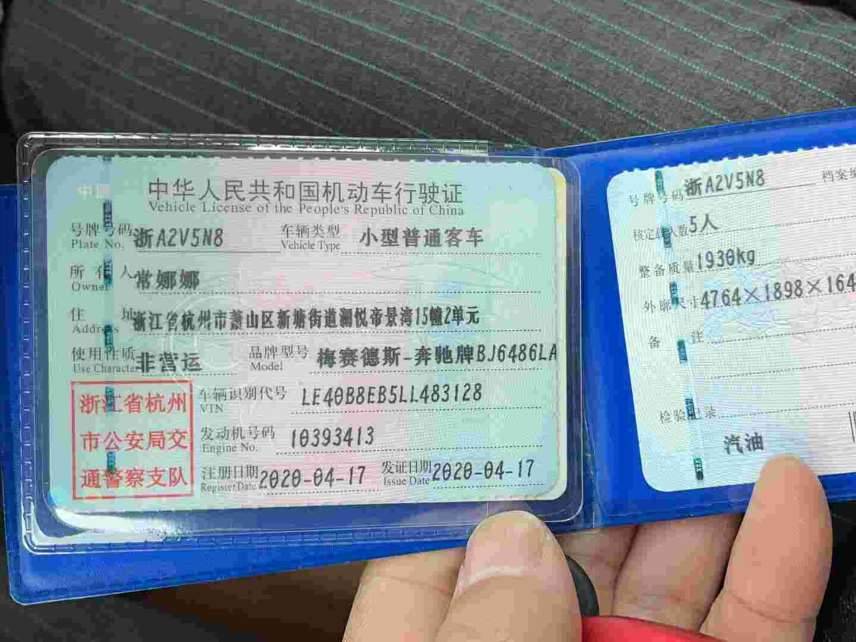 中华人民共和国机动车行驶证
Vehicle License of the People's Republic of China
号牌号码 浙A2V5N8 车辆类型 小型普通客车
Plate No. Vehicle Type
所有人 常娜娜
Owner
住址 浙江省杭州市萧山区新塘街道澜悦帝景湾15幢2单元
Address
使用性质 非营运 品牌型号 梅赛德斯-奔驰牌BJ6486LA
Use Character Model
浙江省杭州
市公安局交
通警察支队
车辆识别代号 LE40B8EB5LL483128
VIN
发动机号码 10393413
Engine No.
注册日期 2020-04-17 发证日期 2020-04-17
Register Date Issue Date
号牌号码 浙A2V5N8 档案编
核定载人数 5人
整备质量 1930kg
外廓尺寸 4764×1898×164
备注
检验记录
汽油